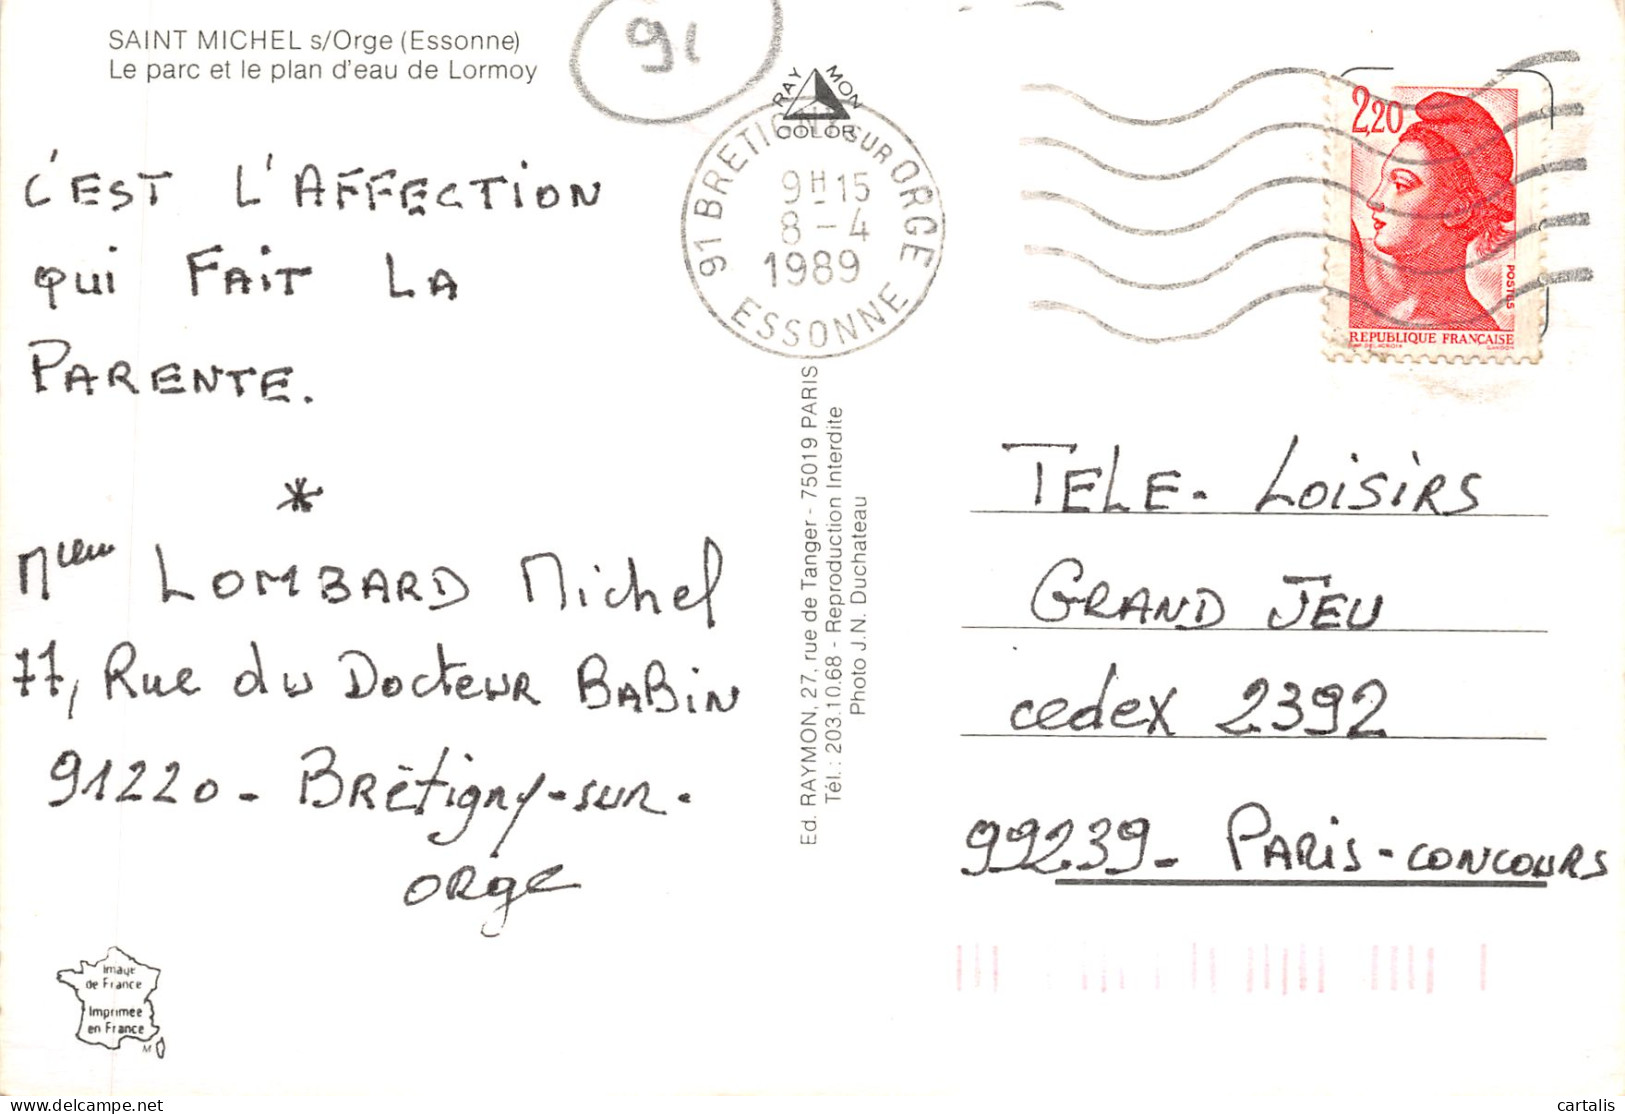 SAINT MICHEL s/Orge (Essonne)
Le parc et le plan d'eau de Lormoy
91
RAYMON
COLOR
91 BRETIGNY SUR ORGE
9H15
8-4
1989
ESSONNE
2,20
POSTES
REPUBLIQUE FRANÇAISE
C'EST L'AFFECTION
QUI FAIT LA
PARENTE.
*
LOMBARD Michel
77, Rue du Docteur BABIN
91220 - Brétigny-sur-
ORge
Ed. RAYMON, 27, rue de Tanger - 75019 PARIS
Tél.: 203.10.68 - Reproduction Interdite
Photo J.N. Duchateau
TELE-LOISIRS
GRAND JEU
cedex 2392
99239 - PARIS-CONCOURS
Image
de France
Imprimée
en France
M
delcampe.net
cartalis